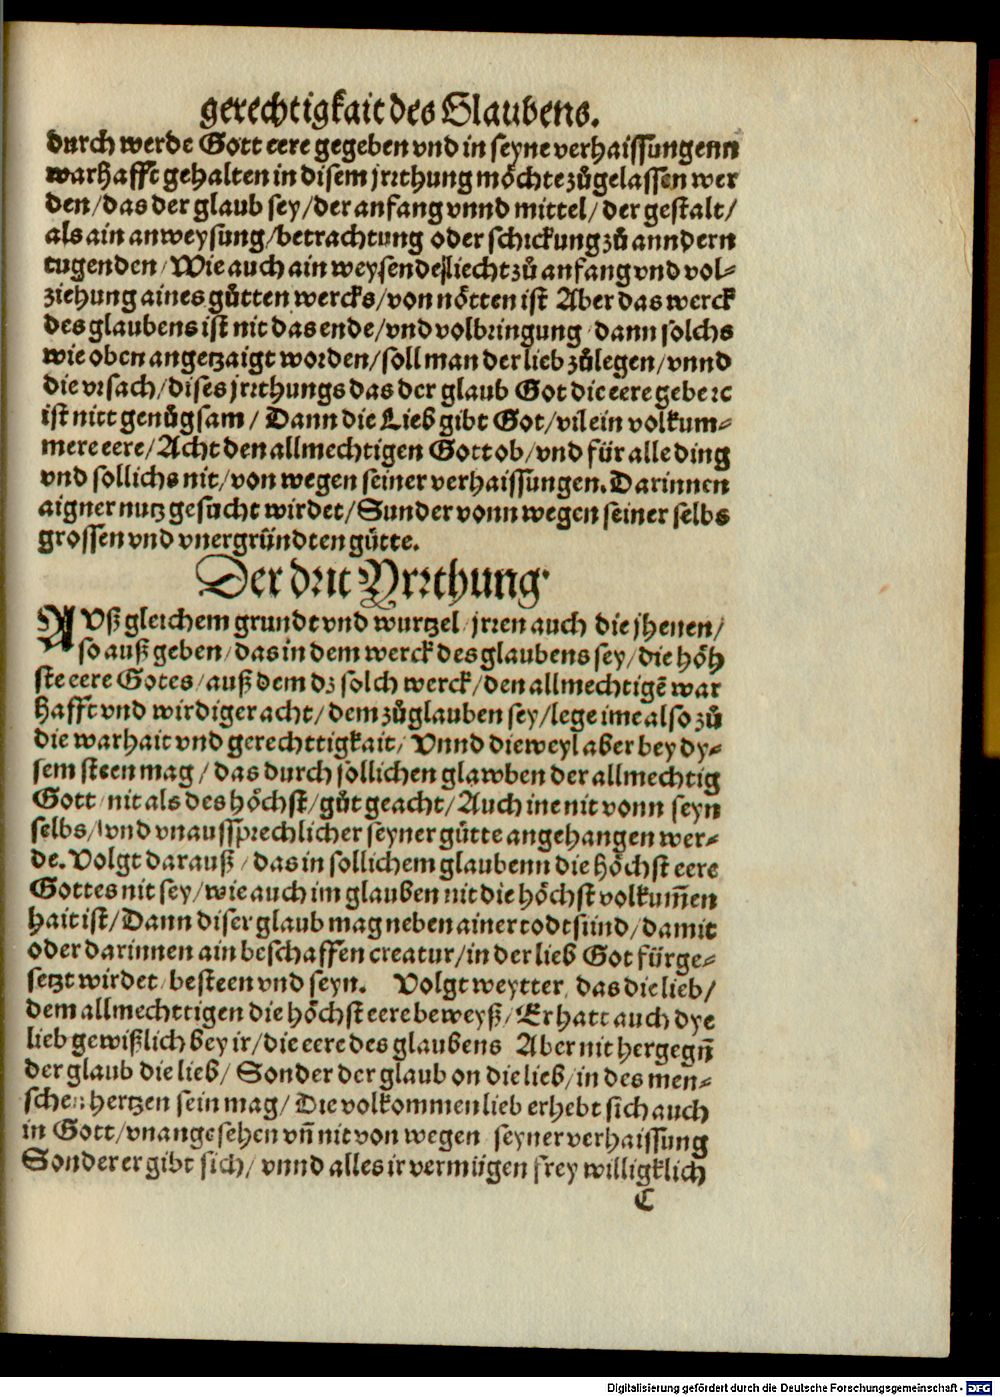 gerechtigkait des Glaubens.
durch werde Gott eere gegeben vnd in seyne verhaissungenn
warhafft gehalten in disem jrrthung möchte zůgelassen wer
den/das der glaub sey/der anfang vnnd mittel/ der gestalt/
als ain anweysung/betrachtung oder schickung zů anndern
tugenden/Wie auch ain weysendes liecht zů anfang vnd vol-
ziehung aines gůtten wercks/von nötten ist Aber das werck
des glaubens ist nit das ende/vnd volbringung/dann solchs
wie oben angetzaigt worden/soll man der lieb zůlegen/vnnd
die vrsach/dises jrrthungs das der glaub Got die eere gebe ꝛc
ist nitt genůgsam/ Dann die Lieb gibt Got/vil ein volkum-
mere eere/Acht den allmechtigen Gott ob/vnd für alle ding
vnd sollichs nit/von wegen seiner verhaissungen. Darinnen
aigner nutz gesucht wirdet/Sunder vonn wegen seiner selbs
grossen vnd vnergründten gůtte.
Der drit Yrrthung.
AVß gleichem grundt vnd wurtzel/jrren auch die jhenen/
so auß geben/das in dem werck des glaubens sey/die höh
ste eere Gotes/auß dem dz solch werck/den allmechtigē war
hafft vnd wirdiger acht/dem zůglauben sey/lege ime also zů
die warhait vnd gerechttigkait/ Vnnd dieweyl aber bey dy-
sem steen mag/das durch söllichen glawben der allmechtig
Gott/nit als des höchst/gůt geacht/Auch ine nit vonn seyn
selbs/vnd vnaussprechlicher seyner gůtte angehangen wer-
de. Volgt darauß/das in sollichem glaubenn die höchst eere
Gottes nit sey/wie auch im glauben nit die höchst volkum̄en
hait ist/Dann diser glaub mag neben ainer todtsünd/damit
oder darinnen ain beschaffen creatur/in der lieb Got fürge-
setzt wirdet/besteen vnd seyn. Volgt weytter/das die lieb/
dem allmechttigen die höchst eere beweyß/Er hatt auch dye
lieb gewißlich bey ir/die eere des glaubens Aber nit hergegn̄
der glaub die lieb/ Sonder der glaub on die lieb/in des men-
schen hertzen sein mag/Die volkommen lieb erhebt sich auch
in Gott/vnangesehen vn̄ nit von wegen seyner verhaissung
Sonder er gibt sich/vnnd alles ir vermügen frey willigklich
C
Digitalisierung gefördert durch die Deutsche Forschungsgemeinschaft - DFG